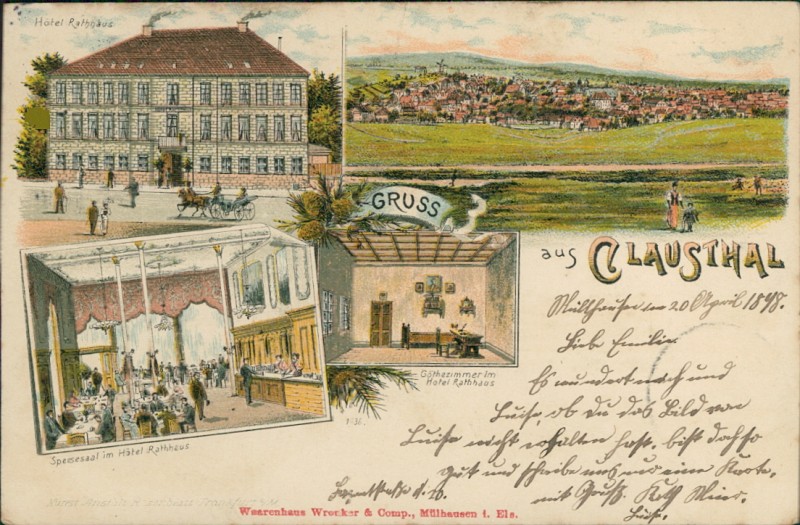 Hôtel Rathhaus
GRUSS
aus CLAUSTHAL
Speisesaal im Hôtel Rathhaus
Göthezimmer im
Hotel Rathhaus
Mülhausen den 20 April 1898.
Liebe Emilie
Es wundert mich und
Luise, ob du das Bild von
Luise nicht erhalten hast. bist doch so
gut und schreibe uns nur eine Karte,
mit Gruß.
Luise.
Waarenhaus Wronker & Comp., Mülhausen i. Els.